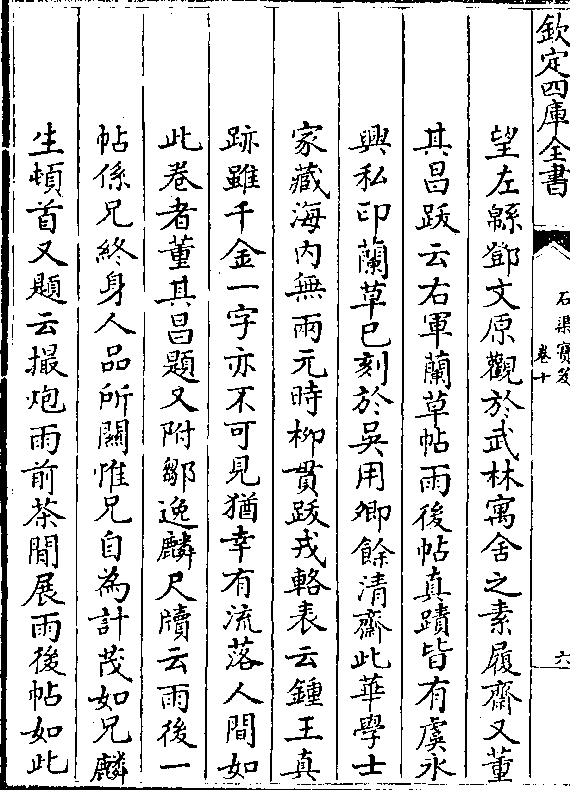 欽定四庫全書
石渠寶笈
卷十
六
望左緜鄧文原觀於武林寓舍之素履齋又董
其昌跋云右軍蘭草帖雨後帖真蹟皆有虞永
興私印蘭草已刻於吳用卿餘清齋此華學士
家藏海內無兩元時柳貫跋戎輅表云鍾王真
跡雖千金一字亦不可見猶幸有流落人間如
此卷者董其昌題又附鄒逸麟尺牘云雨後一
帖係兄終身人品所關惟兄自為計茂如兄麟
生頓首又題云撮炮雨前茶閒展雨後帖如此